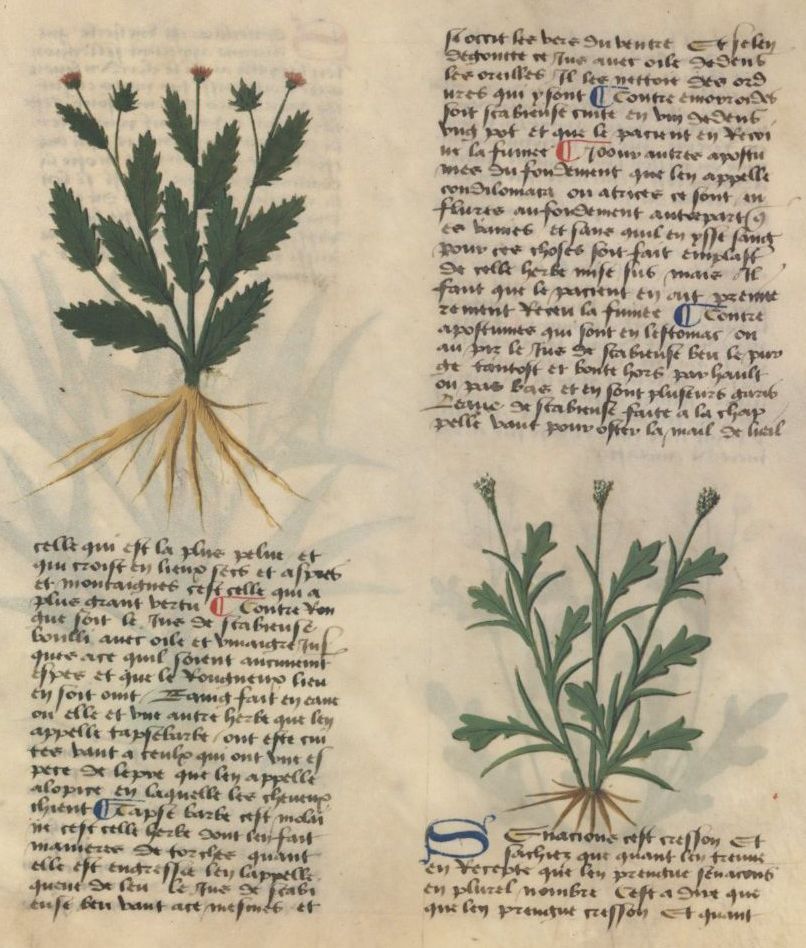 celle qui est la plus pelue et
qui croist en lieux secs et aspres
et montaignes cest celle qui a
plus grant vertu ¶ Contre ron
gne soit le Jus de scabieuse
boulli avec oile et vinaigre Jus
ques ace quil soient aucunemt
espes et que le Rongneux lieu
en soit oint / Baing fait en eaue
ou elle et une autre herbe que len
appelle tapsebarbe ont este cui
tes vault a ceulx qui ont une es
pece de lepre que len appelle
alopice en laquelle les cheveux
chient ¶ Tapse barbe cest molai
ne cest celle herbe dont len fait
manieres de torches quant
elle est engressee len lappelle
queue de leu le Jus de scabi
euse beu vault ace mesmes et
si occit les vers du ventre Et se len
degoutte ce Jus avec oile dedens
les oreilles Il les nettoie des ord
ures qui y sont ¶ Contre emoroides
soit scabieuse cuite en vin dedens
ung pot et que le pacient en Recoi
ve la fumee ¶ Pour autres apostu
mes du fondement que len appelle
condilomata ou atrices ce sont en
flures au fondement
es vaines et sans quil en ysse sang
pour ces choses soit fait emplast
de celle herbe mise sus mais Il
faut que le pacient en ait premie
rement Receu la fumee ¶ Contre
apostumes qui sont en lestomac ou
au piz le Jus de scabieuse beu le pur
ge tantost et boute hors par hault
ou par bas et en sont plusieurs garis
Leaue de scabieuse faite a la chap
pelle vault pour oster la mail de lueil
Senacions cest cresson Et
sachiez que quant len treuve
en Recepte que len prengne senacions
en plurel nombre Cest a dire que
que len prengne cresson Et quant